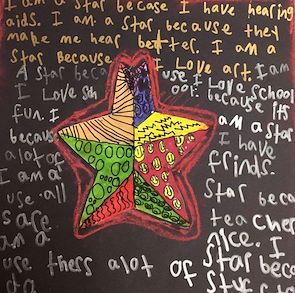 I am a star becase I have hearing
aids. I am a star because they
make me hear better. I am a
Star Because I Love art. I am
A star beca use I Love school
I Love sch ool: because its
fun. I am a star
because I have
alot of frinds.
I am a star beca
use all teacher
s are nice. I
am a star beca
use thers alot of